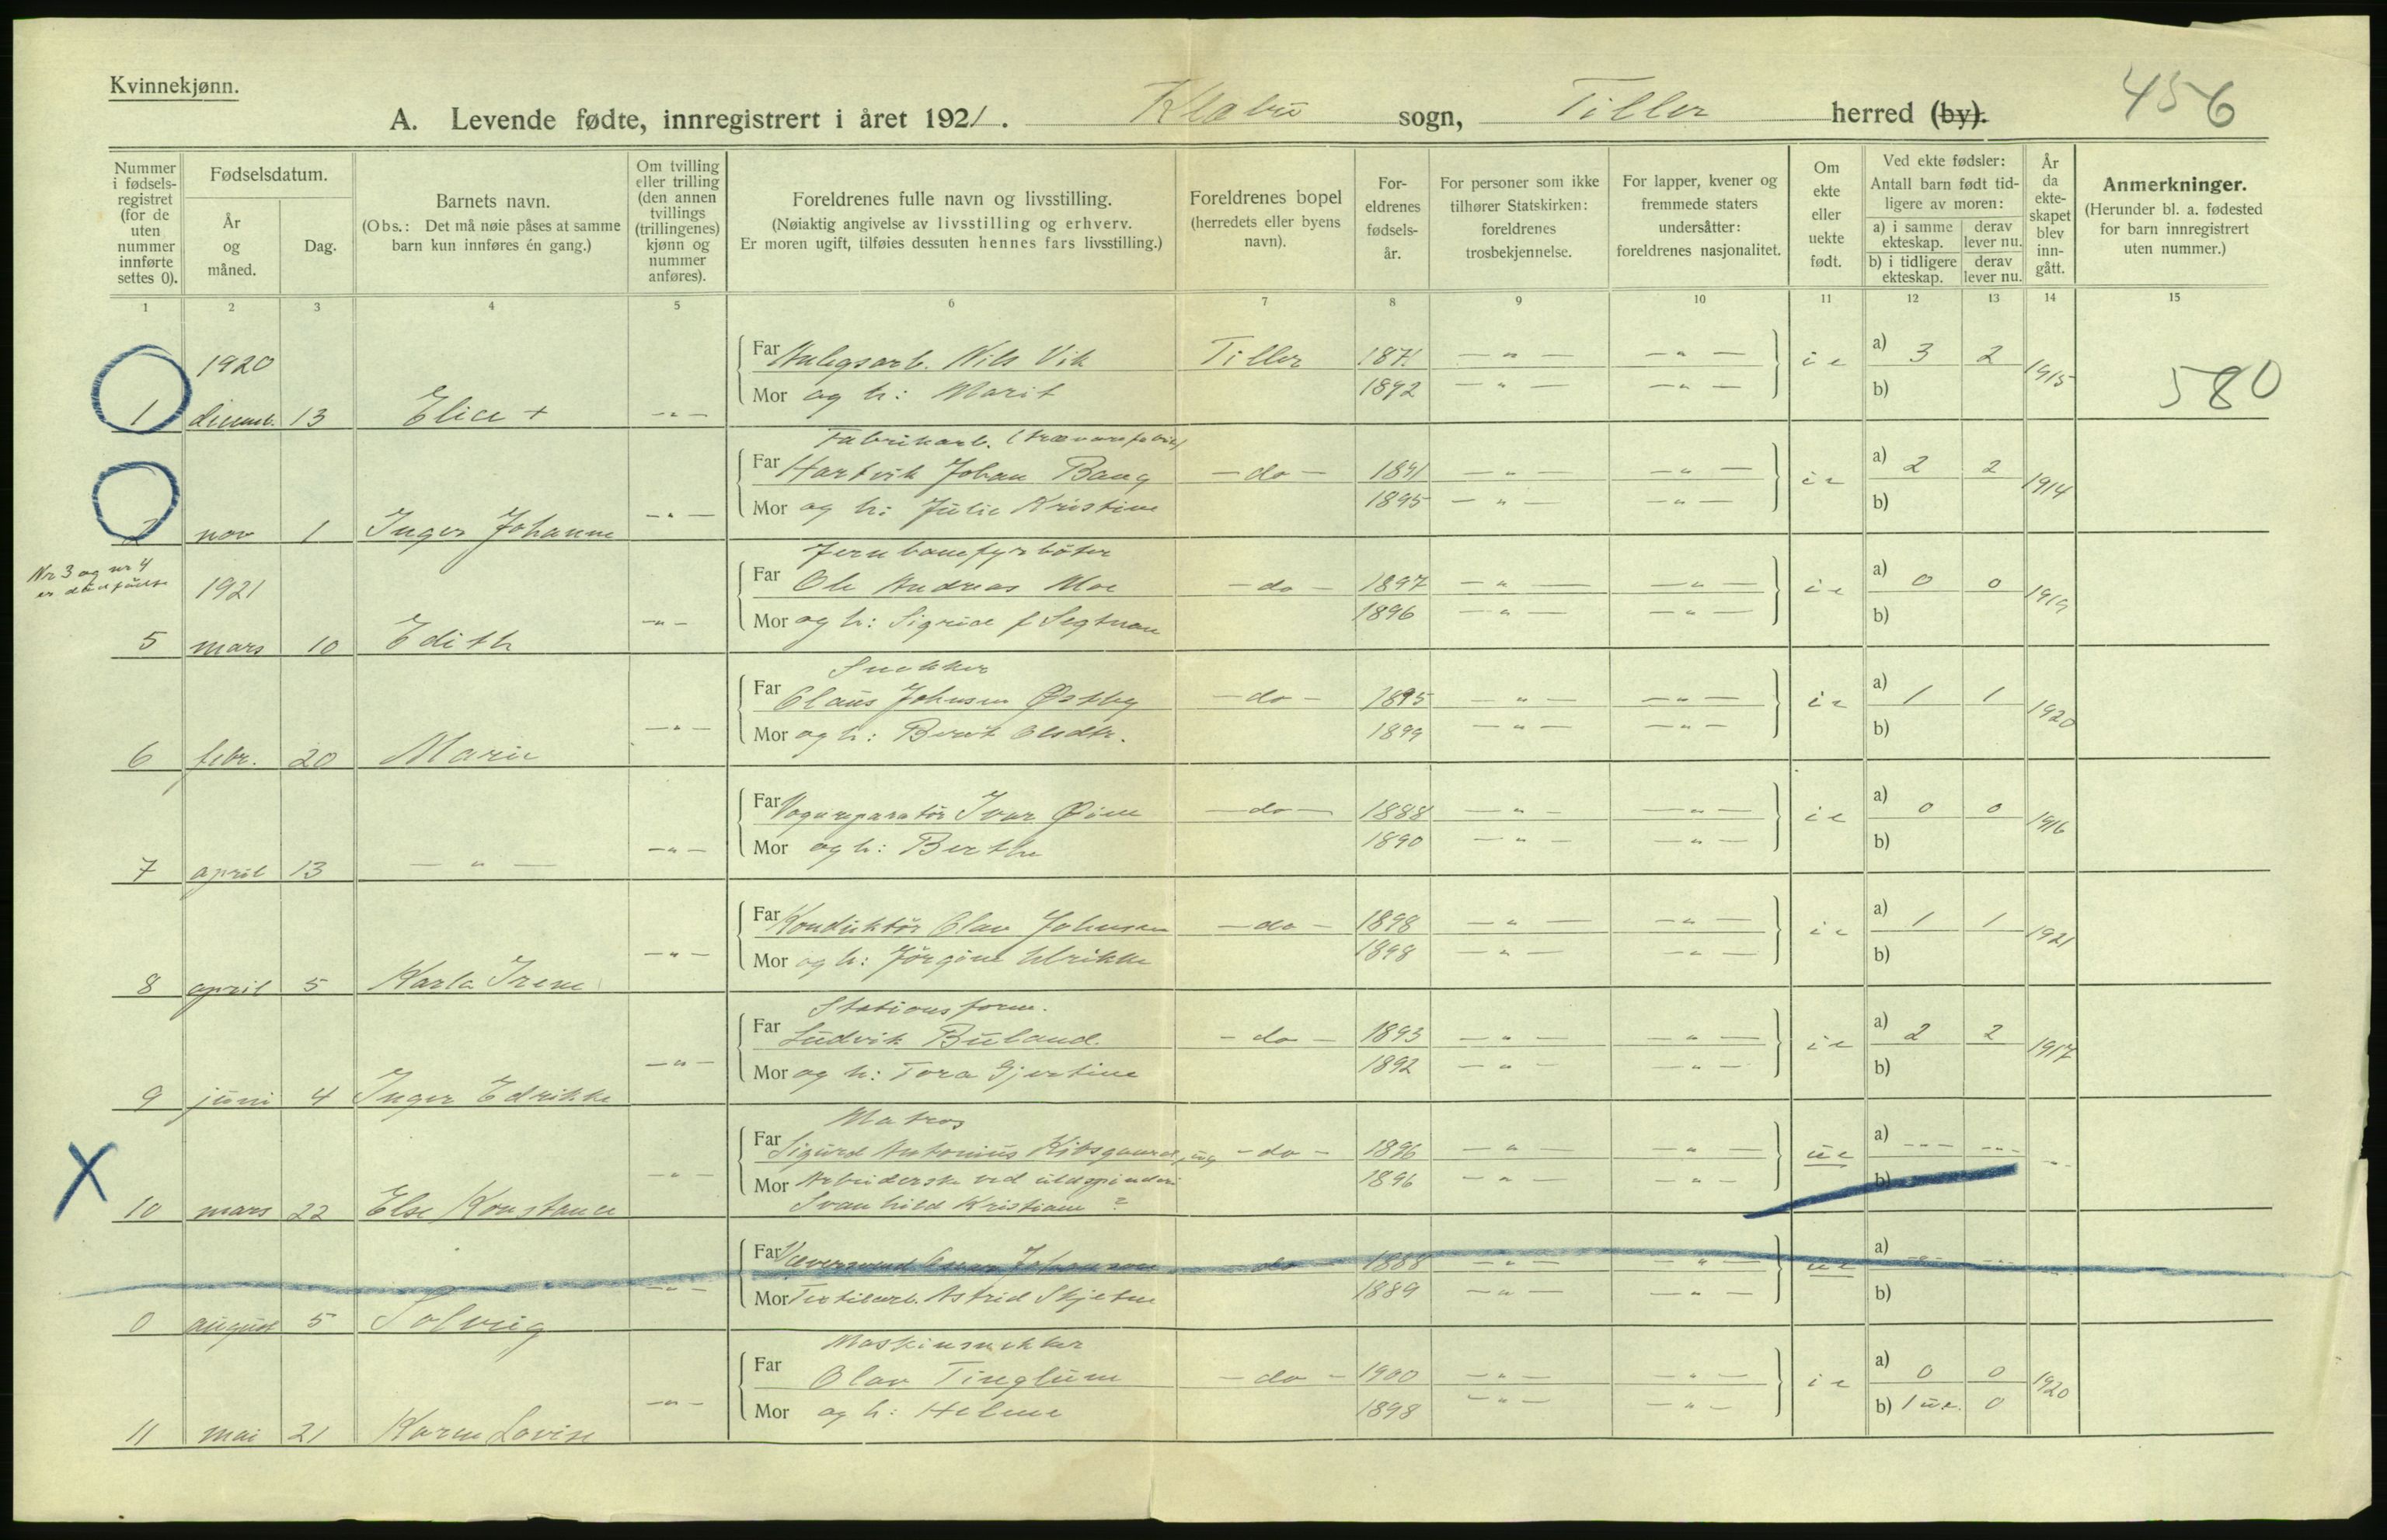 Kvinnekjønn.
456
A. Levende fødte, innregistrert i året 1921. Klæbu sogn, Tiller herred (by).
Nummer i fødsels-registret (for de uten nummer innførte settes 0).
Fødselsdatum.
År og måned.
Dag.
Barnets navn.
(Obs.: Det må nøie påses at samme barn kun innføres én gang.)
Om tvilling eller trilling (den annen tvillings (trillingenes) kjønn og nummer anføres).
Foreldrenes fulle navn og livsstilling.
(Nøiaktig angivelse av livsstilling og erhverv.
Er moren ugift, tilføies dessuten hennes fars livsstilling.)
Foreldrenes bopel
(herredets eller byens navn).
For-eldrenes fødsels-år.
For personer som ikke tilhører Statskirken: foreldrenes trosbekjennelse.
For lapper, kvener og fremmede staters undersåtter: foreldrenes nasjonalitet.
Om ekte eller uekte født.
Ved ekte fødsler:
Antall barn født tid-ligere av moren:
a) i samme ekteskap.
derav lever nu.
b) i tidligere ekteskap.
derav lever nu.
År da ekte-skapet blev inn-gått.
Anmerkninger.
(Herunder bl. a. fødested for barn innregistrert uten nummer.)
1 2 3 4 5 6 7 8 9 10 11 12 13 14 15
1920
Far Anlegsarb. Nils Vik Tiller 1871 — „ — — „ — i e a) 3 2 1915
Mor og h: Marit 1892 — „ — — „ — b)
580
1 decemb. 13 Elice + — „ —
Fabrikarb. (trævarefabrik)
Far Hartvik Johan Bang — do — 1891 — „ — — „ — i e a) 2 2 1914
Mor og h: Julie Kristine 1895 — „ — — „ — b)
2 nov 1 Inger Johanne — „ —
Nr 3 og nr 4
er
1921
Jernbanefyrbøter
Far Ole Andreas Moe — do — 1897 — „ — — „ — i e a) 0 0 1919
Mor og h: Sigrid f 1896 — „ — — „ — b)
5 mars 10 Edith — „ —
Snekker
Far Claus Johnsen Østby — do — 1895 — „ — — „ — i e a) 1 1 1920
Mor og h: Berit Olsdtr. 1899 — „ — — „ — b)
6 febr. 20 Marie — „ —
Far Vognreparatør Ivar Øien — do — 1888 — „ — — „ — i e a) 0 0 1916
Mor og h: Berthe 1890 — „ — — „ — b)
7 april 13 — „ — — „ —
Far Konduktør Olav Johnsen — do — 1898 — „ — — „ — i e a) 1 1 1921
Mor og h: Jørgine Ulrikke 1898 — „ — — „ — b)
8 april 5 Karla Irene — „ —
Stationsform.
Far Ludvik Buland. — do — 1893 — „ — — „ — i e a) 2 2 1917
Mor og h: Tora Gjertine 1892 — „ — — „ — b)
9 juni 4 Inger Edrikke — „ —
Matros
Far Sigurd Antonius — do — 1896 — „ — — „ — u e a) --- --- --
Mor Arbeiderske ved uldspinderi 1896 — „ — — „ — b)
X 10 mars 22 Else Konstance — „ — Svanhild Kristiane ?
Far Væversvend Johanson — do — 1888 — „ — — „ — u e a) --- --- --
Mor Textilarb. Astrid Skjetne 1889 — „ — — „ — b)
0 august 5 Solveig — „ —
Maskinsnekker
Far Olav Tinglum — do — 1900 — „ — — „ — i e a) 0 0 1920
Mor og h: Helene 1898 — „ — — „ — b) 1 u.e. 0
11 mai 21 Karen Lovise — „ —